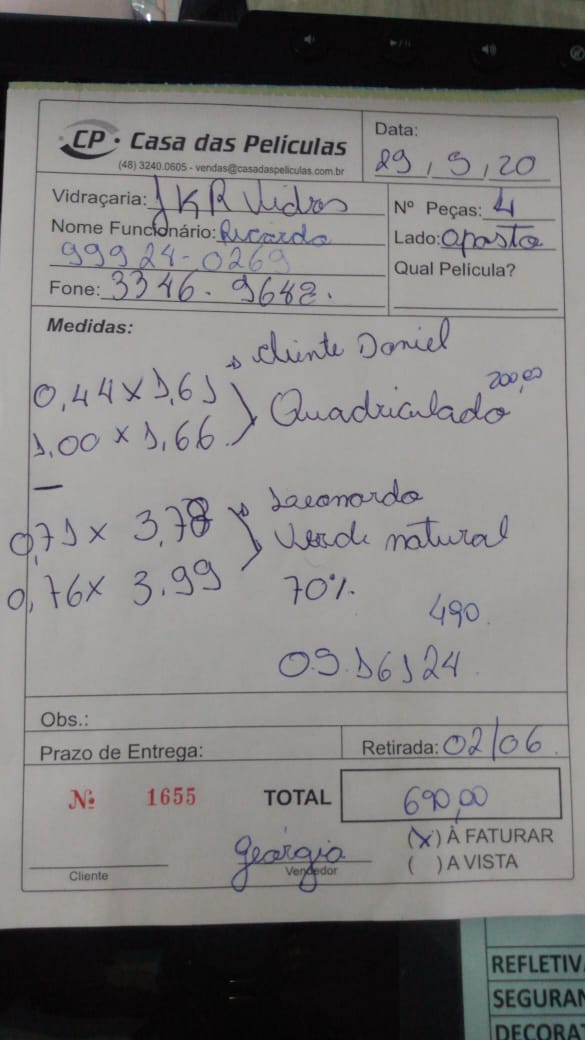 CP · Casa das Películas
(48) 3240.0605 - vendas@casadaspeliculas.com.br
Data:
29, 5, 20
Vidraçaria: JKR Vidros
Nome Funcionário: Ricardo
99924-0269
Fone: 3346. 9648.
Nº Peças: 4
Lado: oposto
Qual Película?
Medidas:
cliente Daniel
0,44 x 1,61
200,00
1,00 x 1,66
Quadriculado
0,71 x 3,78
Leonardo
Verde natural
0,76 x 3.99
70%.
490.
O.S. 16124.
Obs.:
Prazo de Entrega:
Retirada: 02/06.
Nº 1655
TOTAL
690,00
(x) À FATURAR
( ) A VISTA
Geórgia
Cliente
Vendedor
REFLETIV
SEGURAN
DECORAT